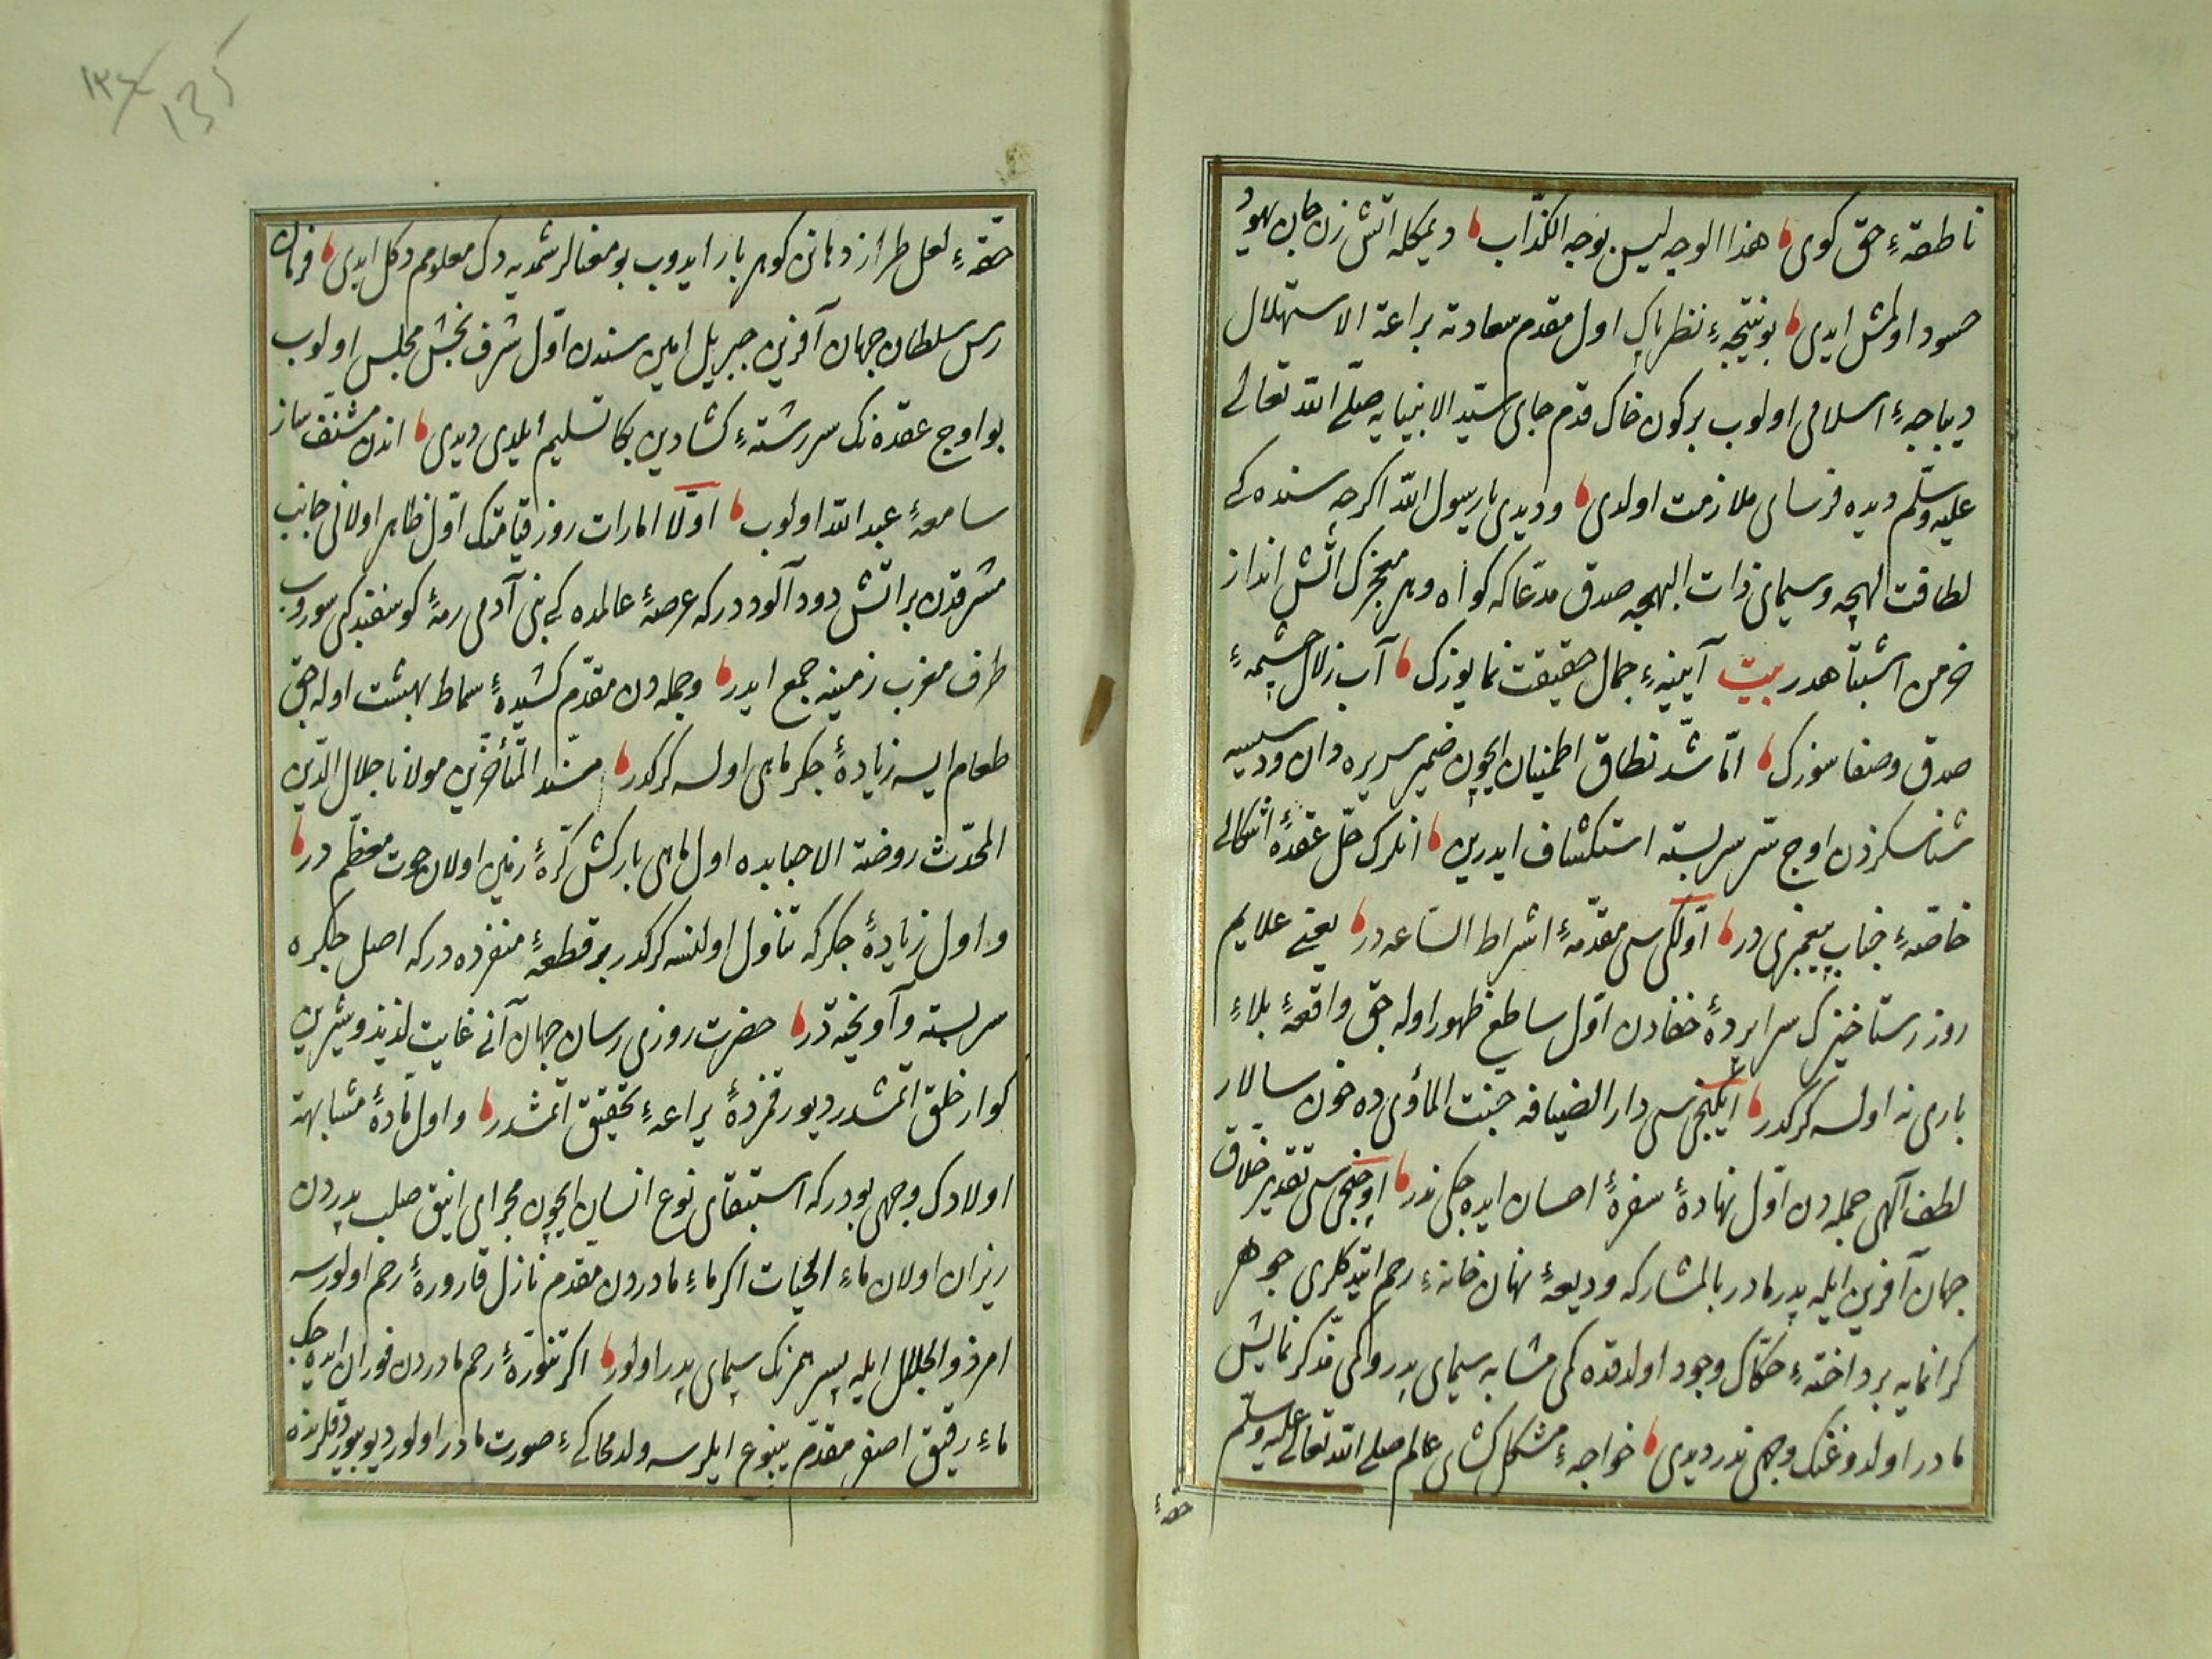 ناطقهٔ حق کوی هذا الوجه لیس بوجه الکذّاب دیمکله آتش زن جان یهود
حسود اولمش ایدی بو نتیجهٔ نظر پاک اول مقدم سعادته براعة الاستهلال
دیباجهٔ اسلامی اولوب بر کون خاک قدم جای سیّد الانبیایه صلّی الله تعالی
علیه وسلّم دیده فرسای ملازمت اولدی ودیدی یا رسول الله اکرچه سنده کی
لطافت لهجه وسیمای ذات البهجه صدق مدّعاکه کواه وهر معجزک آتش انداز
خرمن اشتباهدر بیت آیینهٔ جمال حقیقت نما یوزک آب زلال چشمهٔ
صدق وصفا سوزک امّا شدّ نطاق اطمینان ایچون ضمیر سریره دان ودسیسه
شناسکزدن اوچ سرّ سربسته استکشاف ایدرین انلرک حلّ عقدهٔ اشکالی
خاصّهٔ جناب پیغمبری در اوّلکی سی مقدّمهٔ اشراط الساعه در یعنی علایم
روز رستاخیزک سراپردهٔ خفادن اوّل ساطع ظهور اوله جق واقعهٔ بلاءٔ
باری نه اولسه کرکدر ایکنجی سی دار الضیافه جنت المأوی ده خون سالار
لطف الهی جمله دن اوّل نهادهٔ سفرهٔ احسان ایده جکی ندر اوچنجی سی تقدیر خلاق
جهان آفرین ایله پدر مادر بالمشارکه ودیعهٔ نهان خانهٔ رحم ایتدکلری جوهر
کرانمایه پرداختهٔ حکّاک وجود اولدقده کمی مشابه سیمای پدر وکمی مذکر نمایش
مادر اولدوغنک وجهی ندر دیدی خواجهٔ مشکل کشای عالم صلی الله تعالی علیه وسلّم
حقهٔ
١٣٤
135
حقّهٔ لعل طراز دهانن کوهر بار ایدوب بو معنالر شمدیه دک معلومم دکل ایدی فرمان
رس سلطان جهان آفرین جبریل امین سندن اوّل شرف بخش مجلس اولوب
بو اوچ عقده نک سررشتهٔ کشادین بکا تسلیم ایلدی دیدی اندن مشنّف ساز
سامعهٔ عبد الله اولوب اوّلا امارات روز قیامتک اوّل ظاهر اولانی جانب
مشرقدن بر آتش دود آلوددر که عرصهٔ عالمده کی بنی آدمی رمهٔ کوسفند کبی سوروب
طرف مغرب زمینه جمع ایدر وجمله دن مقدّم کشیدهٔ سماط بهشت اوله جق
طعام ایسه زیادهٔ جکر ماهی اولسه کرکدر سند المتأخّرین مولانا جلال الدّین
المحدّث روضة الاحبابده اول ماهی بارکش کرّهٔ زمین اولان حوت معظّم در
واول زیادهٔ جکر که تناول اولنسه کرکدر بر قطعهٔ منفرده در که اصل جکره
سربسته وآویخته در حضرت روزی رسان جهان آنی غایت لذیذ وشیرین
کوار خلق ایتمشدر دیو رقمزدهٔ یراعهٔ تحقیق ایتمشدر واول مادهٔ مشابهت
اولادک وجهی بودر که استبقای نوع انسان ایچون مجرای انیق صلب پدردن
ریزان اولان ماء الحیات اکر ماء مادردن مقدم نازل قارورهٔ رحم اولورسه
امر ذو الجلال ایله پسر همرنک سیمای پدر اولور اکر تنّورهٔ رحم مادردن فوران ایده جک
ماء رقیق اصفر مقدّم ینبوع ایلرسه ولد محاکیٔ صورت مادر اولور دیو بیوردقلرنده